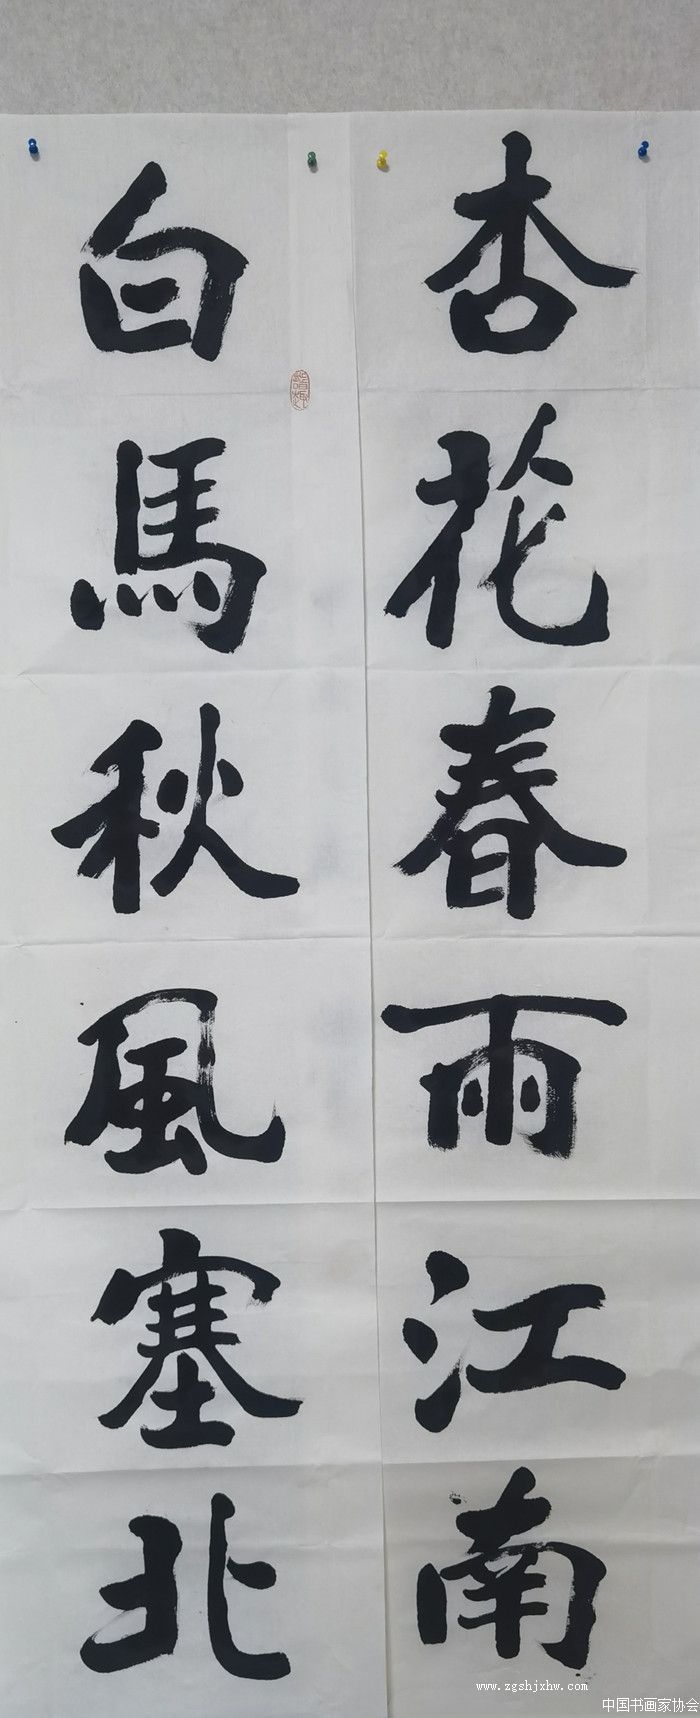 杏花春雨江南
白馬秋風塞北
www.zgshjxhw.com
中国书画家协会